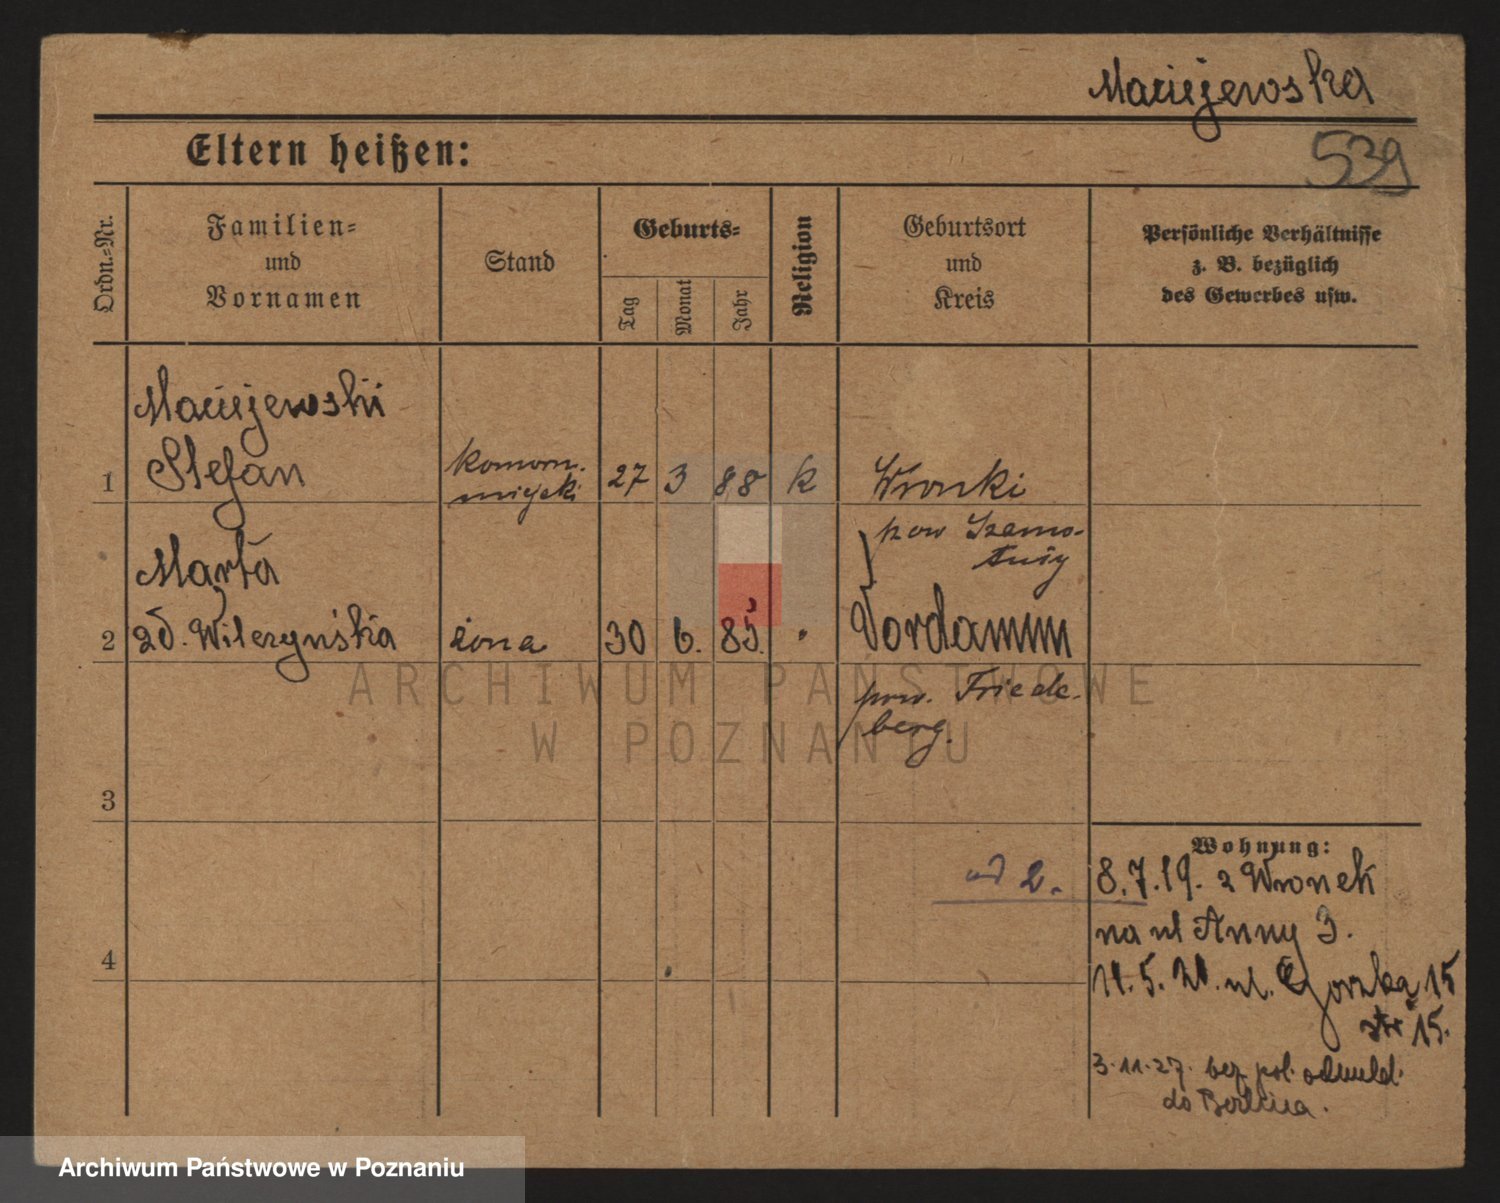 Maciejewska
539
Eltern heißen:
Ordn.-Nr.
Familien-
und
Vornamen
Stand
Geburts-
Tag
Monat
Jahr
Religion
Geburtsort
und
Kreis
Persönliche Verhältnisse
z. B. bezüglich
des Gewerbes usw.
Maciejewski
1 Stefan
komorn.
miejski
27 3 88 k Wronki
pow Szamo-
tuły
Marta
2 zd. Wilczyńska żona 30 6. 85. Vordamm
pow. Friede-
berg.
ARCHIWUM PAŃSTWOWE
W POZNANIU
3
Wohnung:
od 2. 8.7.19. z Wronek
na ul Anny 3.
4
14.5. ul. 15
15.
3.11.27. bez pol. odmeld.
do Berlina.
Archiwum Państwowe w Poznaniu